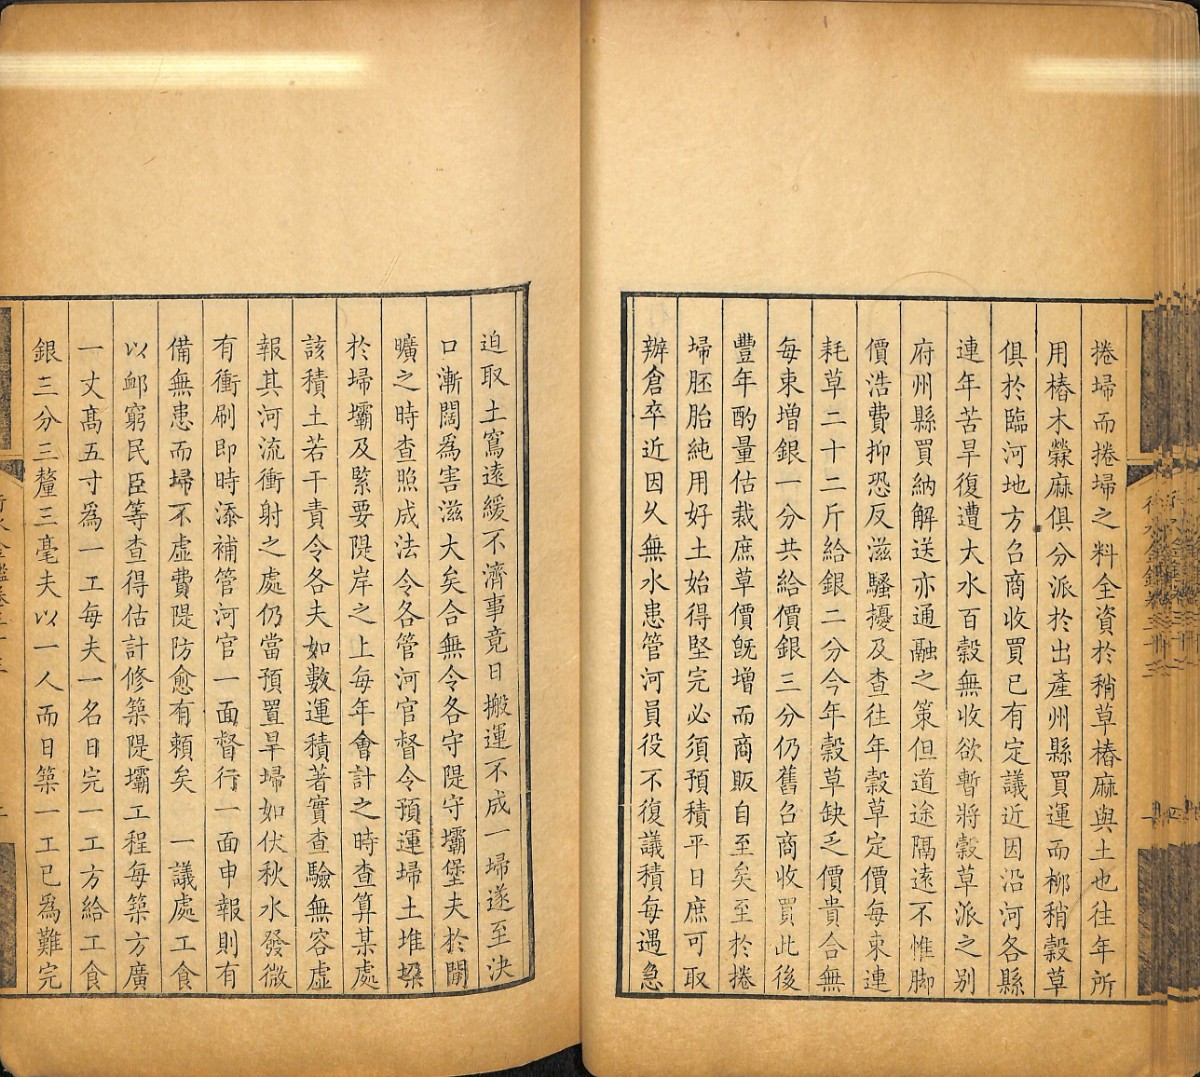 捲埽而捲埽之料全資於稍草樁麻與土也往年所
用樁木檾麻俱分派於出產州縣買運而柳稍榖草
俱於臨河地方召商收買已有定議近因沿河各縣
連年苦旱復遭大水百榖無收欲暫將榖草派之別
府州縣買納解送亦通融之策但道途隔遠不惟脚
價浩費抑恐反滋騷擾及查往年榖草定價每束連
耗草二十二斤給銀二分今年榖草缺乏價貴合無
每束增銀一分共給價銀三分仍舊召商收買此後
豐年酌量估裁庶草價旣增而商販自至矣至於捲
埽胚胎純用好土始得堅完必須預積平日庶可取
辦倉卒近因乆無水患管河員役不復議積每遇急
迫取土窵遠緩不濟事竟日搬運不成一埽遂至決
口漸闊為害滋大矣合無令各守隄守壩堡夫於閒
曠之時查照成法令各管河官督令預運埽土堆垛
於埽壩及緊要隄岸之上每年會計之時查算某處
該積土若干責令各夫如數運積著實查驗無容虛
報其河流衝射之處仍當預置旱埽如伏秋水發微
有衝刷即時添補管河官一面督行一面申報則有
備無患而埽不虛費隄防愈有賴矣　一議處工食
以䘏窮民臣等查得估計修築隄壩工程每築方廣
一丈髙五寸為一工每夫一名日完一工方給工食
銀三分三釐三毫夫以一人而日築一工已為難完